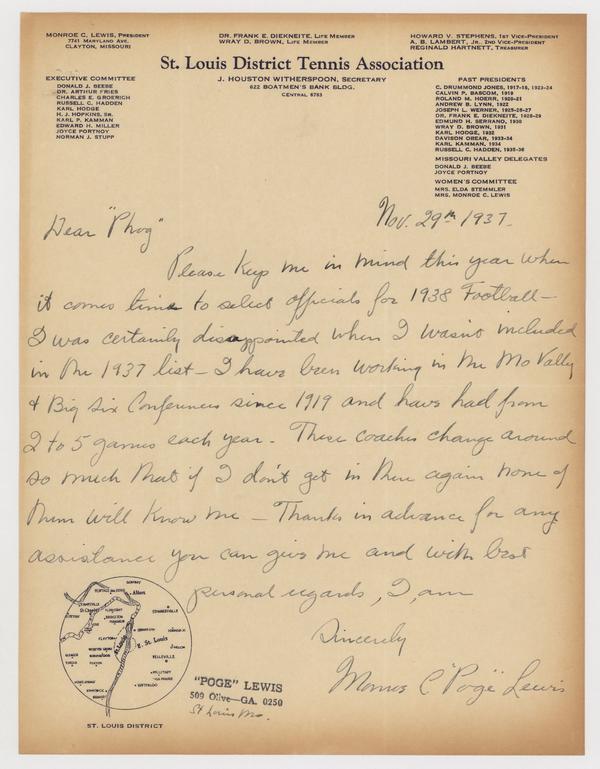 MONROE C. LEWIS, PRESIDENT
7741 MARYLAND AVE.
CLAYTON, MISSOURI
DR. FRANK E. DIEKNEITE, LIFE MEMBER
WRAY D. BROWN, LIFE MEMBER
HOWARD V. STEPHENS, 1ST VICE-PRESIDENT
A. B. LAMBERT, JR. 2ND VICE-PRESIDENT
REGINALD HARTNETT, TREASURER
St. Louis District Tennis Association
J. HOUSTON WITHERSPOON, SECRETARY
622 BOATMEN'S BANK BLDG.
CENTRAL 6783
EXECUTIVE COMMITTEE
DONALD J. BEEBE
DR. ARTHUR FRIES
CHARLES E. GROERICH
RUSSELL C. HADDEN
KARL HODGE
H. J. HOPKINS, SR.
KARL P. KAMMAN
EDWARD H. MILLER
JOYCE PORTNOY
NORMAN J. STUPP
PAST PRESIDENTS
C. DRUMMOND JONES, 1917-18, 1923-24
CALVIN P. BASCOM, 1919
ROLAND M. HOERR, 1920-21
ANDREW B. LYNN, 1922
JOSEPH L. WERNER, 1925-26-27
DR. FRANK E. DIEKNEITE, 1928-29
EDMUND H. SERRANO, 1930
WRAY D. BROWN, 1931
KARL HODGE, 1932
DAVISON OBEAR, 1933-34
KARL KAMMAN, 1934
RUSSELL C. HADDEN, 1935-36
MISSOURI VALLEY DELEGATES
DONALD J. BEEBE
JOYCE PORTNOY
WOMEN'S COMMITTEE
MRS. ELDA STEMMLER
MRS. MONROE C. LEWIS
Nov. 29th 1937.
Dear "Phog"
Please keep me in mind this year when
it comes time to select officials for 1938 Football—
I was certainly disappointed when I wasn't included
in the 1937 list— I have been working in the Mo Valley
& Big Six Conferences since 1919 and have had from
2 to 5 games each year. These coaches change around
so much that if I don't get in there again none of
them will know me — Thanks in advance for any
assistance you can give me and with best
personal regards, I am
Sincerely
Monroe C "Poge" Lewis
"POGE" LEWIS
509 Olive—GA. 0250
St Louis Mo.
Alton
St. Charles
EDWARDSVILLE
CLAYTON
St. Louis
E. St. Louis
BELLEVILLE
WATERLOO
ST. LOUIS DISTRICT